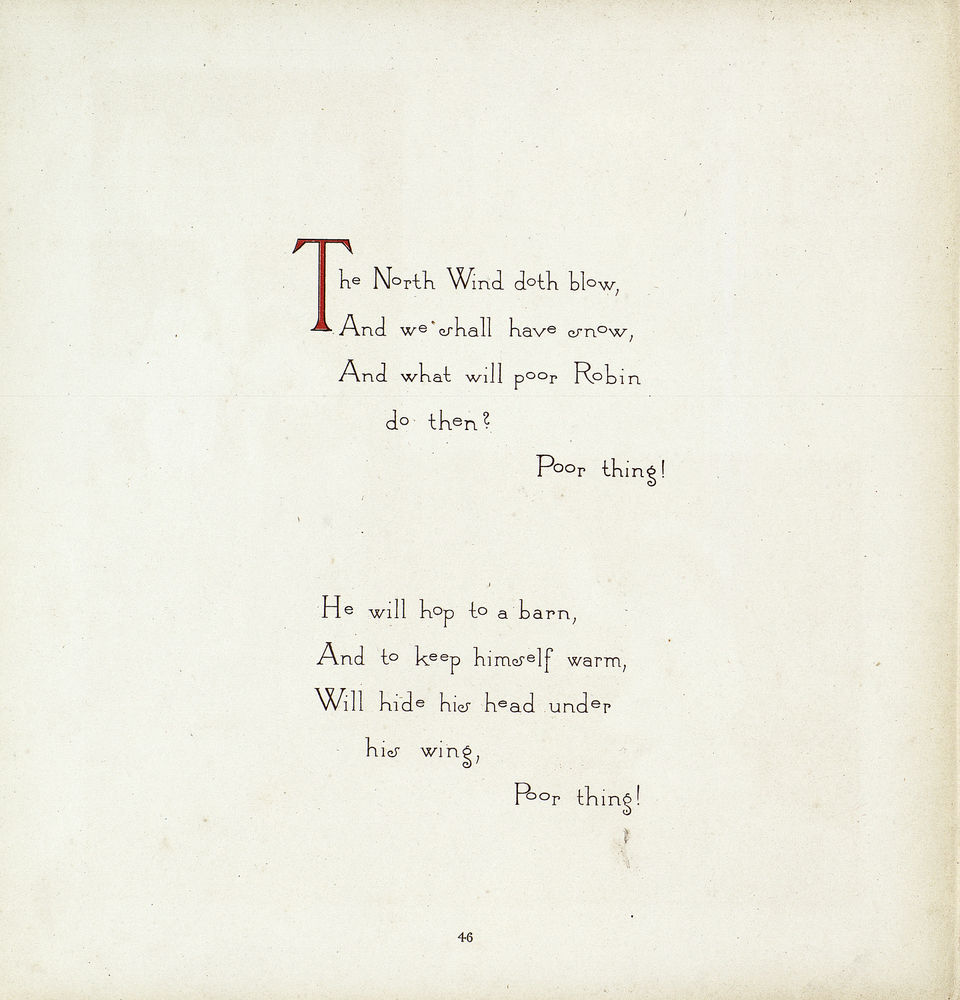 The North Wind doth blow,
And we shall have snow,
And what will poor Robin
do then?
Poor thing!
He will hop to a barn,
And to keep himself warm,
Will hide his head under
his wing,
Poor thing!
46